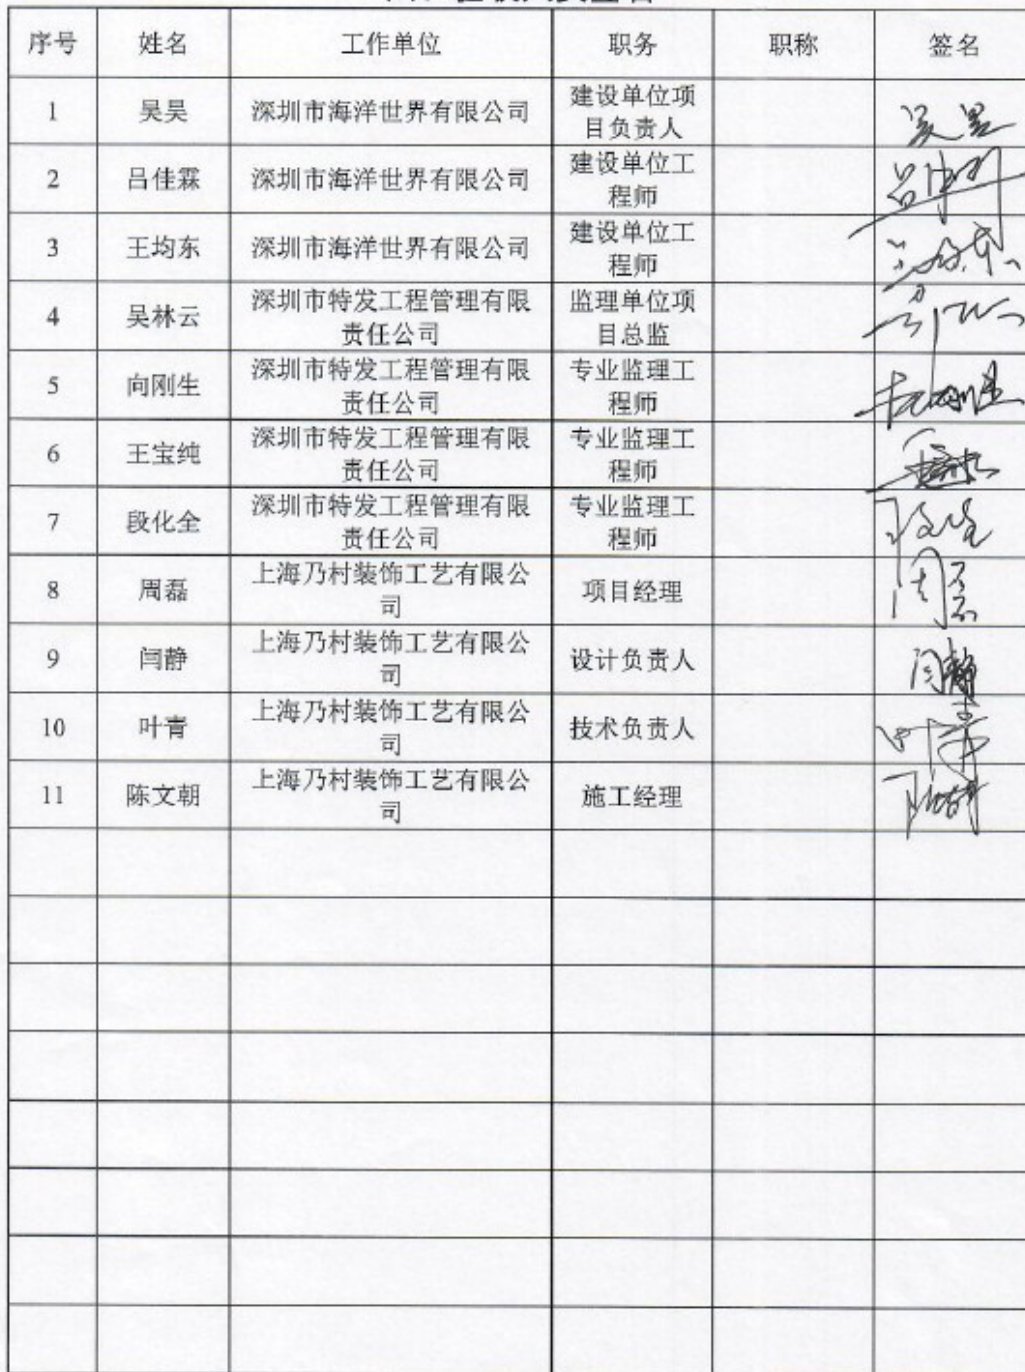 序号 姓名 工作单位 职务 职称 签名
1 吴昊 深圳市海洋世界有限公司 建设单位项
目负责人 吴昊
2 吕佳霖 深圳市海洋世界有限公司 建设单位工
程师
3 王均东 深圳市海洋世界有限公司 建设单位工
程师
4 吴林云 深圳市特发工程管理有限
责任公司 监理单位项
目总监
5 向刚生 深圳市特发工程管理有限
责任公司 专业监理工
程师
6 王宝纯 深圳市特发工程管理有限
责任公司 专业监理工
程师
7 段化全 深圳市特发工程管理有限
责任公司 专业监理工
程师
8 周磊 上海乃村装饰工艺有限公
司 项目经理 周磊
9 闫静 上海乃村装饰工艺有限公
司 设计负责人 闫静
10 叶青 上海乃村装饰工艺有限公
司 技术负责人 叶青
11 陈文朝 上海乃村装饰工艺有限公
司 施工经理